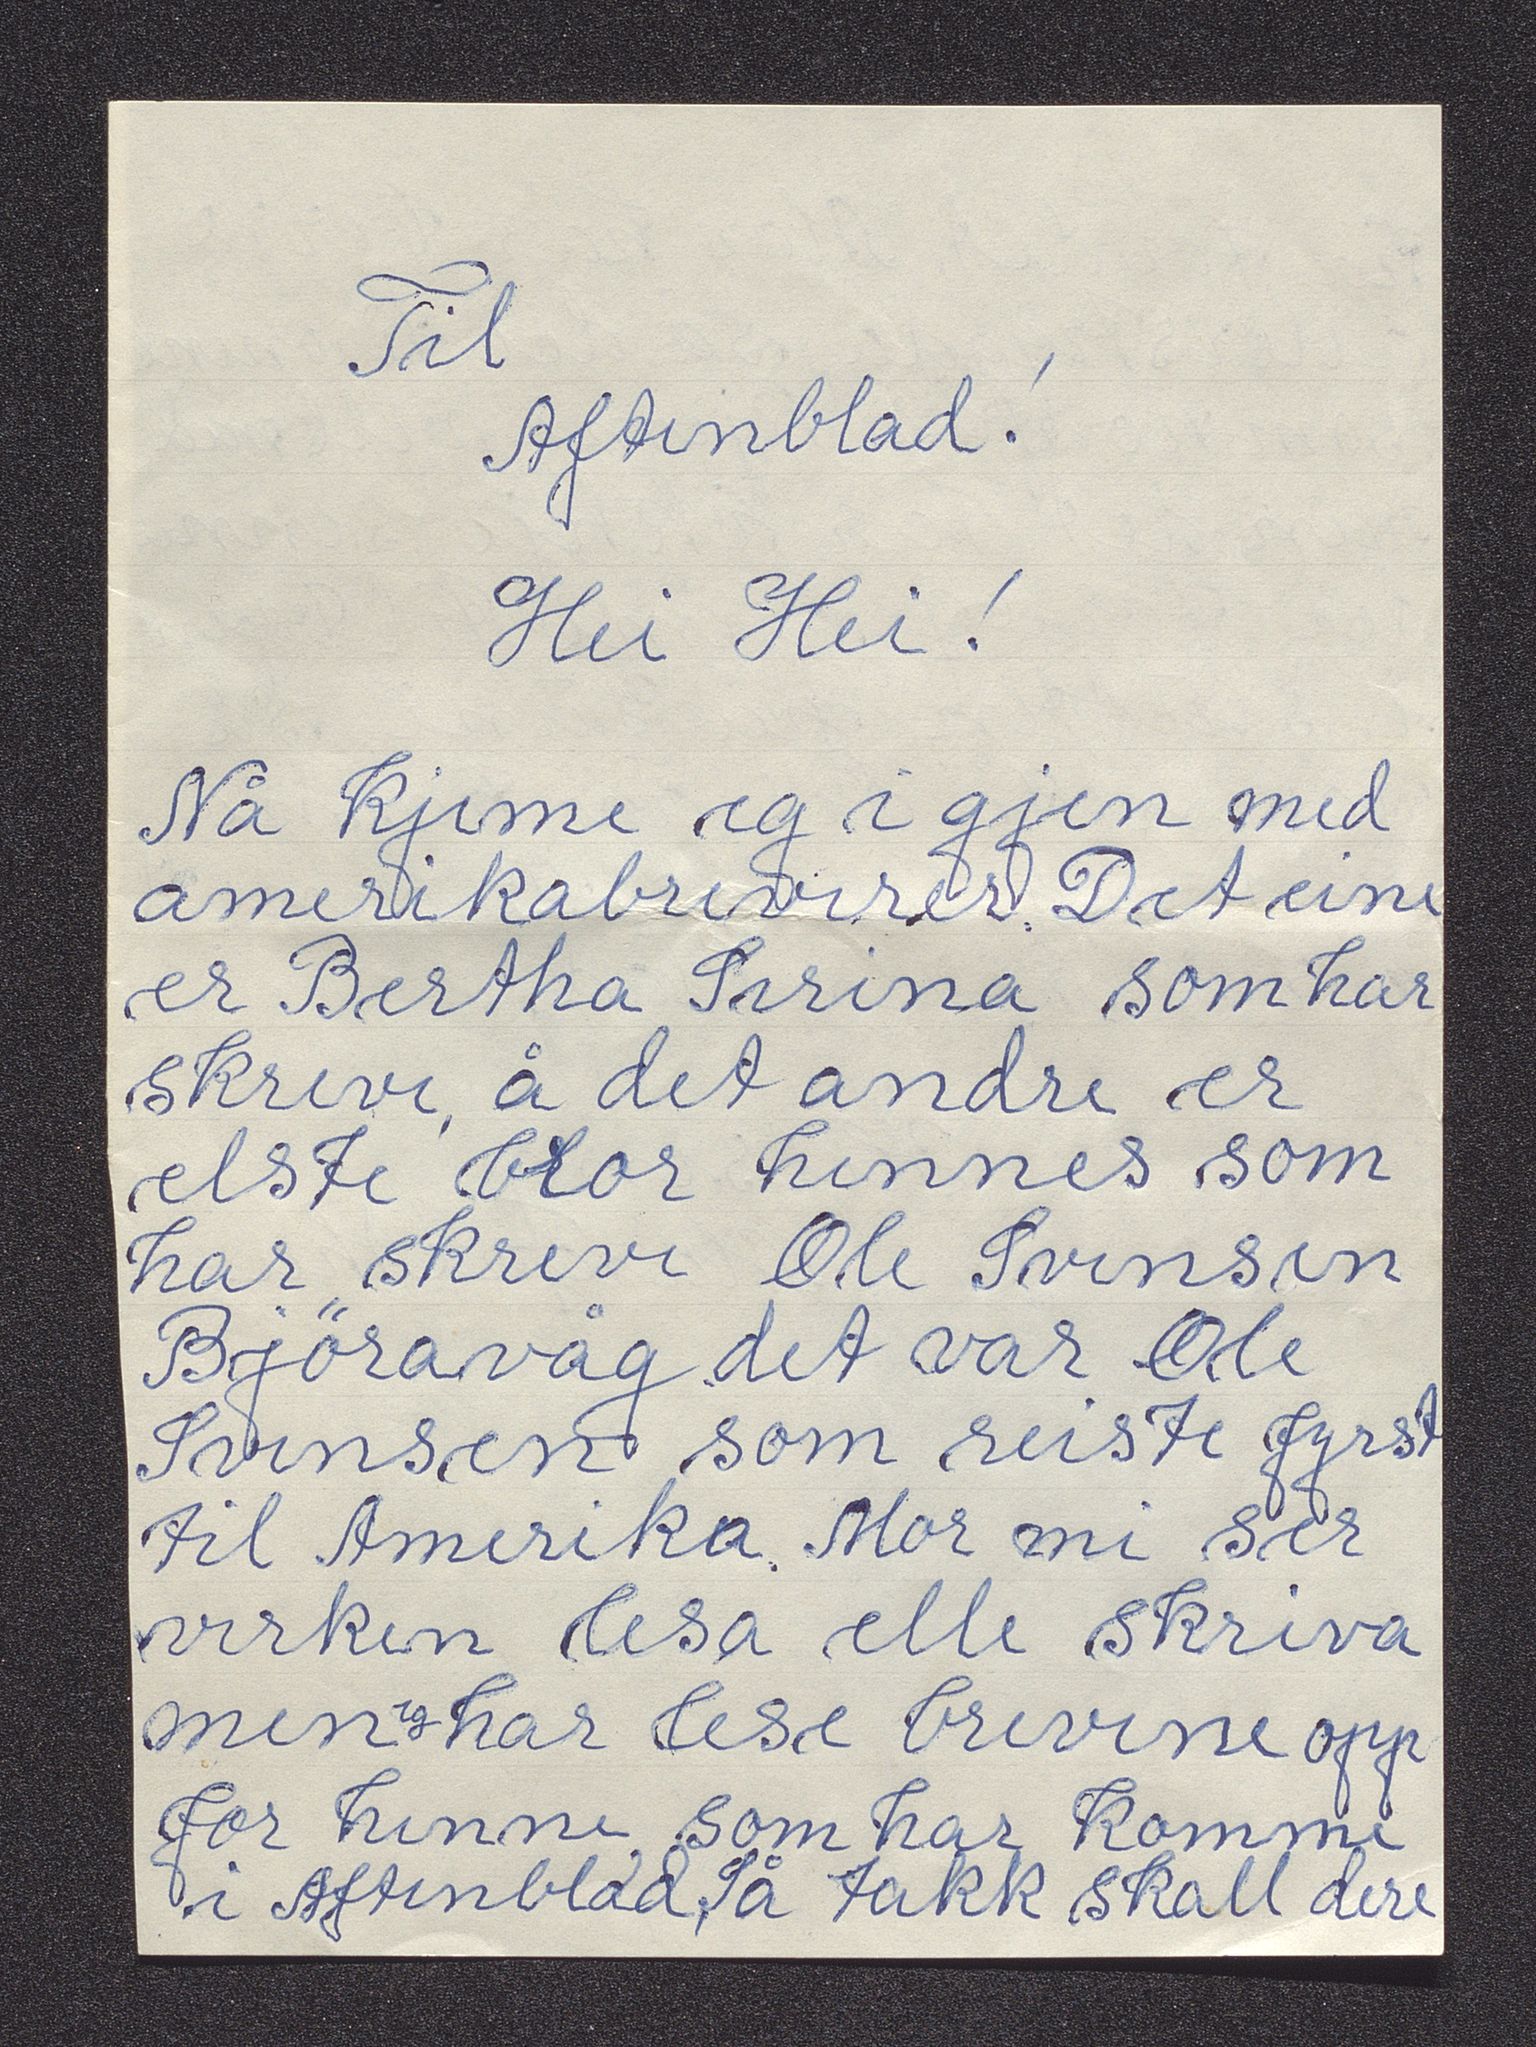 Til
Aftenblad!
Hei Hei!
Nå kjeme eg i gjen med
amerikabrevirer. Det eine
er Bertha Serina som har
skreve, å det andre er
elste bror hennes som
har skreve Ole Svensen
Björavåg det var Ole
Svensen som reiste fyrst
til Amerika. Mor mi ser
verken lesa elle skriva
men eg har lese brevene opp
for henne, som har komme
i Aftenblad, Så takk skall dere